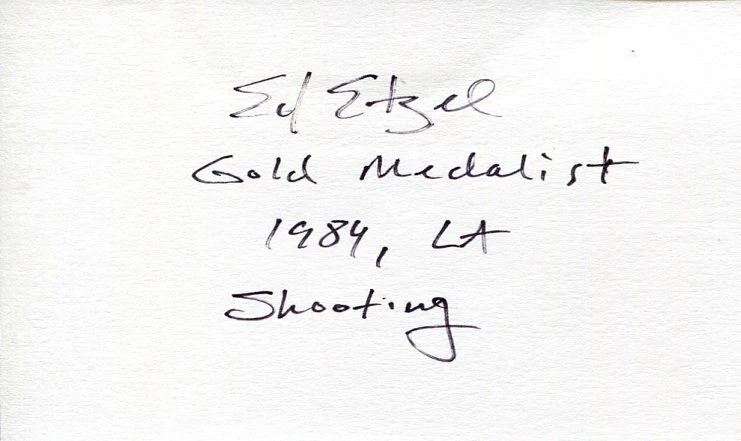 Ed Etzel
Gold Medalist
1984, LA
Shooting